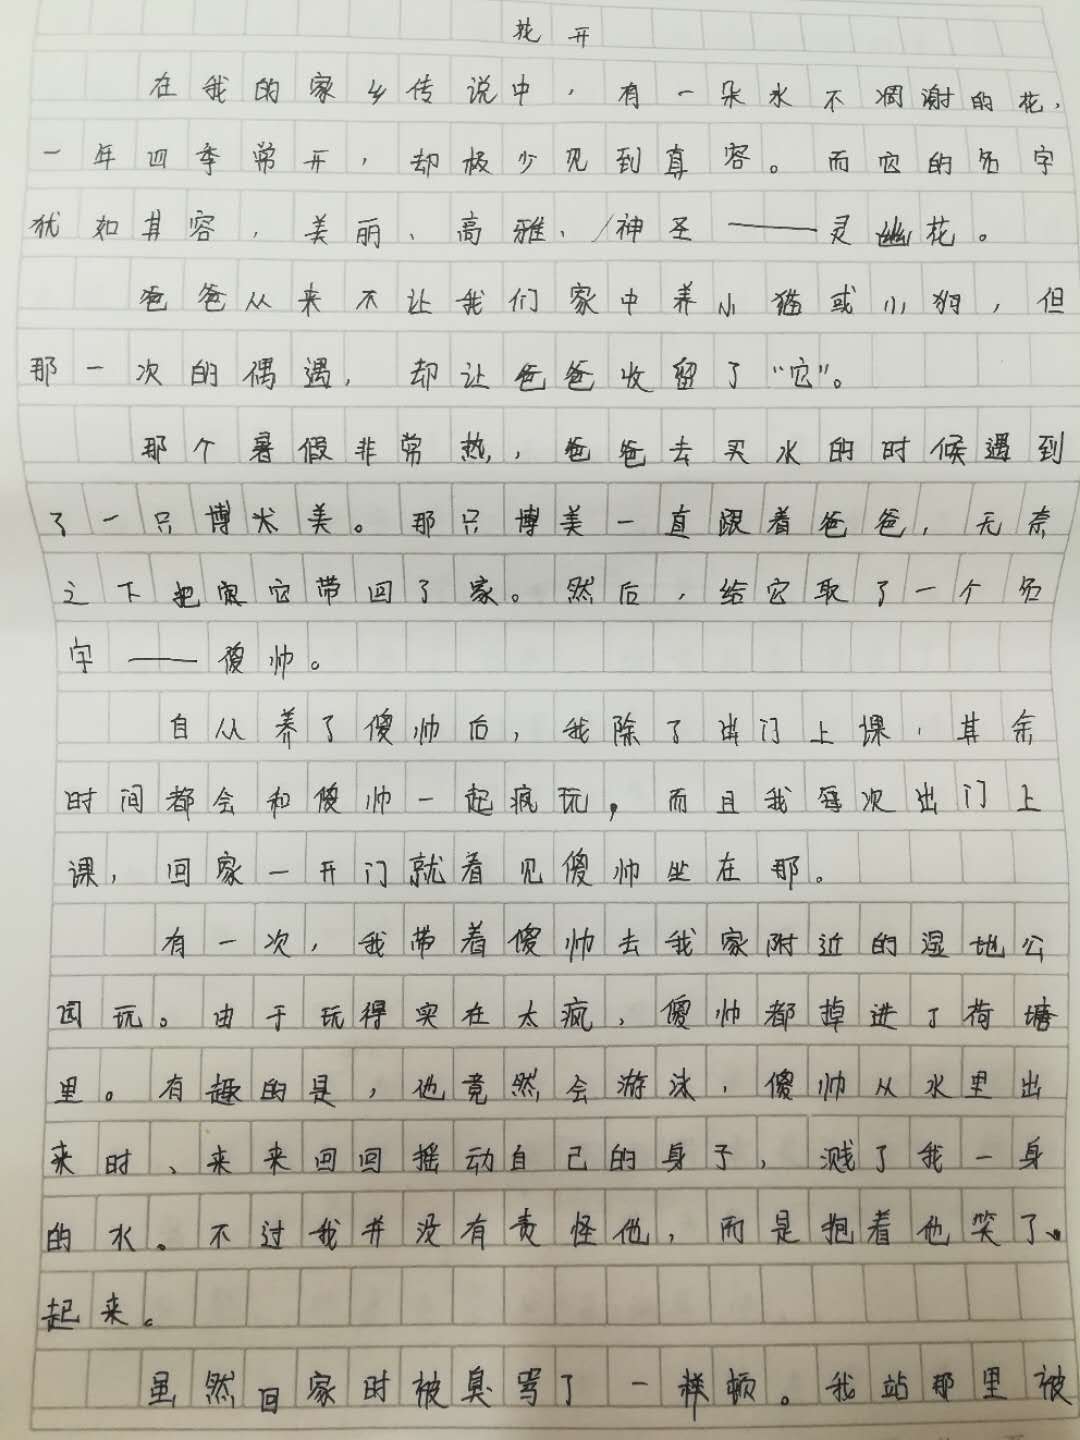 花开
在我的家乡传说中，有一朵水不凋谢的花，
一年四季常开，却极少见到真容。而它的名字
犹如其容，美丽、高雅、神圣——灵幽花。
爸爸从来不让我们家中养小猫或小狗，但
那一次的偶遇，却让爸爸收留了“它”。
那个暑假非常热，爸爸去买水的时候遇到
了一只博美。那只博美一直跟着爸爸，无奈
之下把它带回了家。然后，给它取了一个名
字——傻帅。
自从养了傻帅后，我除了出门上课，其余
时间都会和傻帅一起疯玩，而且我每次出门上
课，回家一开门就看见傻帅坐在那。
有一次，我带着傻帅去我家附近的湿地公
园玩。由于玩得实在太疯，傻帅都掉进了荷塘
里。有趣的是，他竟然会游泳，傻帅从水里出
来时、来来回回摇动自己的身子，溅了我一身
的水。不过我并没有责怪他，而是抱着他笑了
起来。
虽然回家时被臭骂了一顿。我站那里被